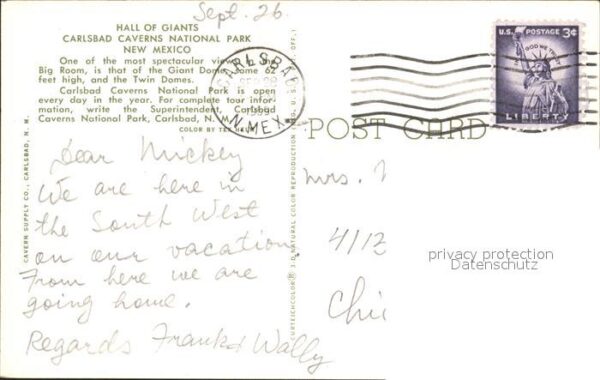 Sept. 26
HALL OF GIANTS
CARLSBAD CAVERNS NATIONAL PARK
NEW MEXICO
One of the most spectacular views in the
Big Room, is that of the Giant Dome, some 62
feet high, and the Twin Domes.
Carlsbad Caverns National Park is open
every day in the year. For complete tour infor-
mation, write the Superintendent, Carlsbad
Caverns National Park, Carlsbad, N. M.
COLOR BY
CAVERN SUPPLY CO., CARLSBAD, N. M.
Dear Mickey
We are here in
the South West
on our vacation
From here we are
going home.
Regards Frank & Wally
CARLSBAD
N. MEX.
U.S. POSTAGE 3¢
IN GOD WE TRUST
LIBERTY
POST CARD
NATURAL COLOR REPRODUCTION
Mrs.
4113
Chi
privacy protection
Datenschutz